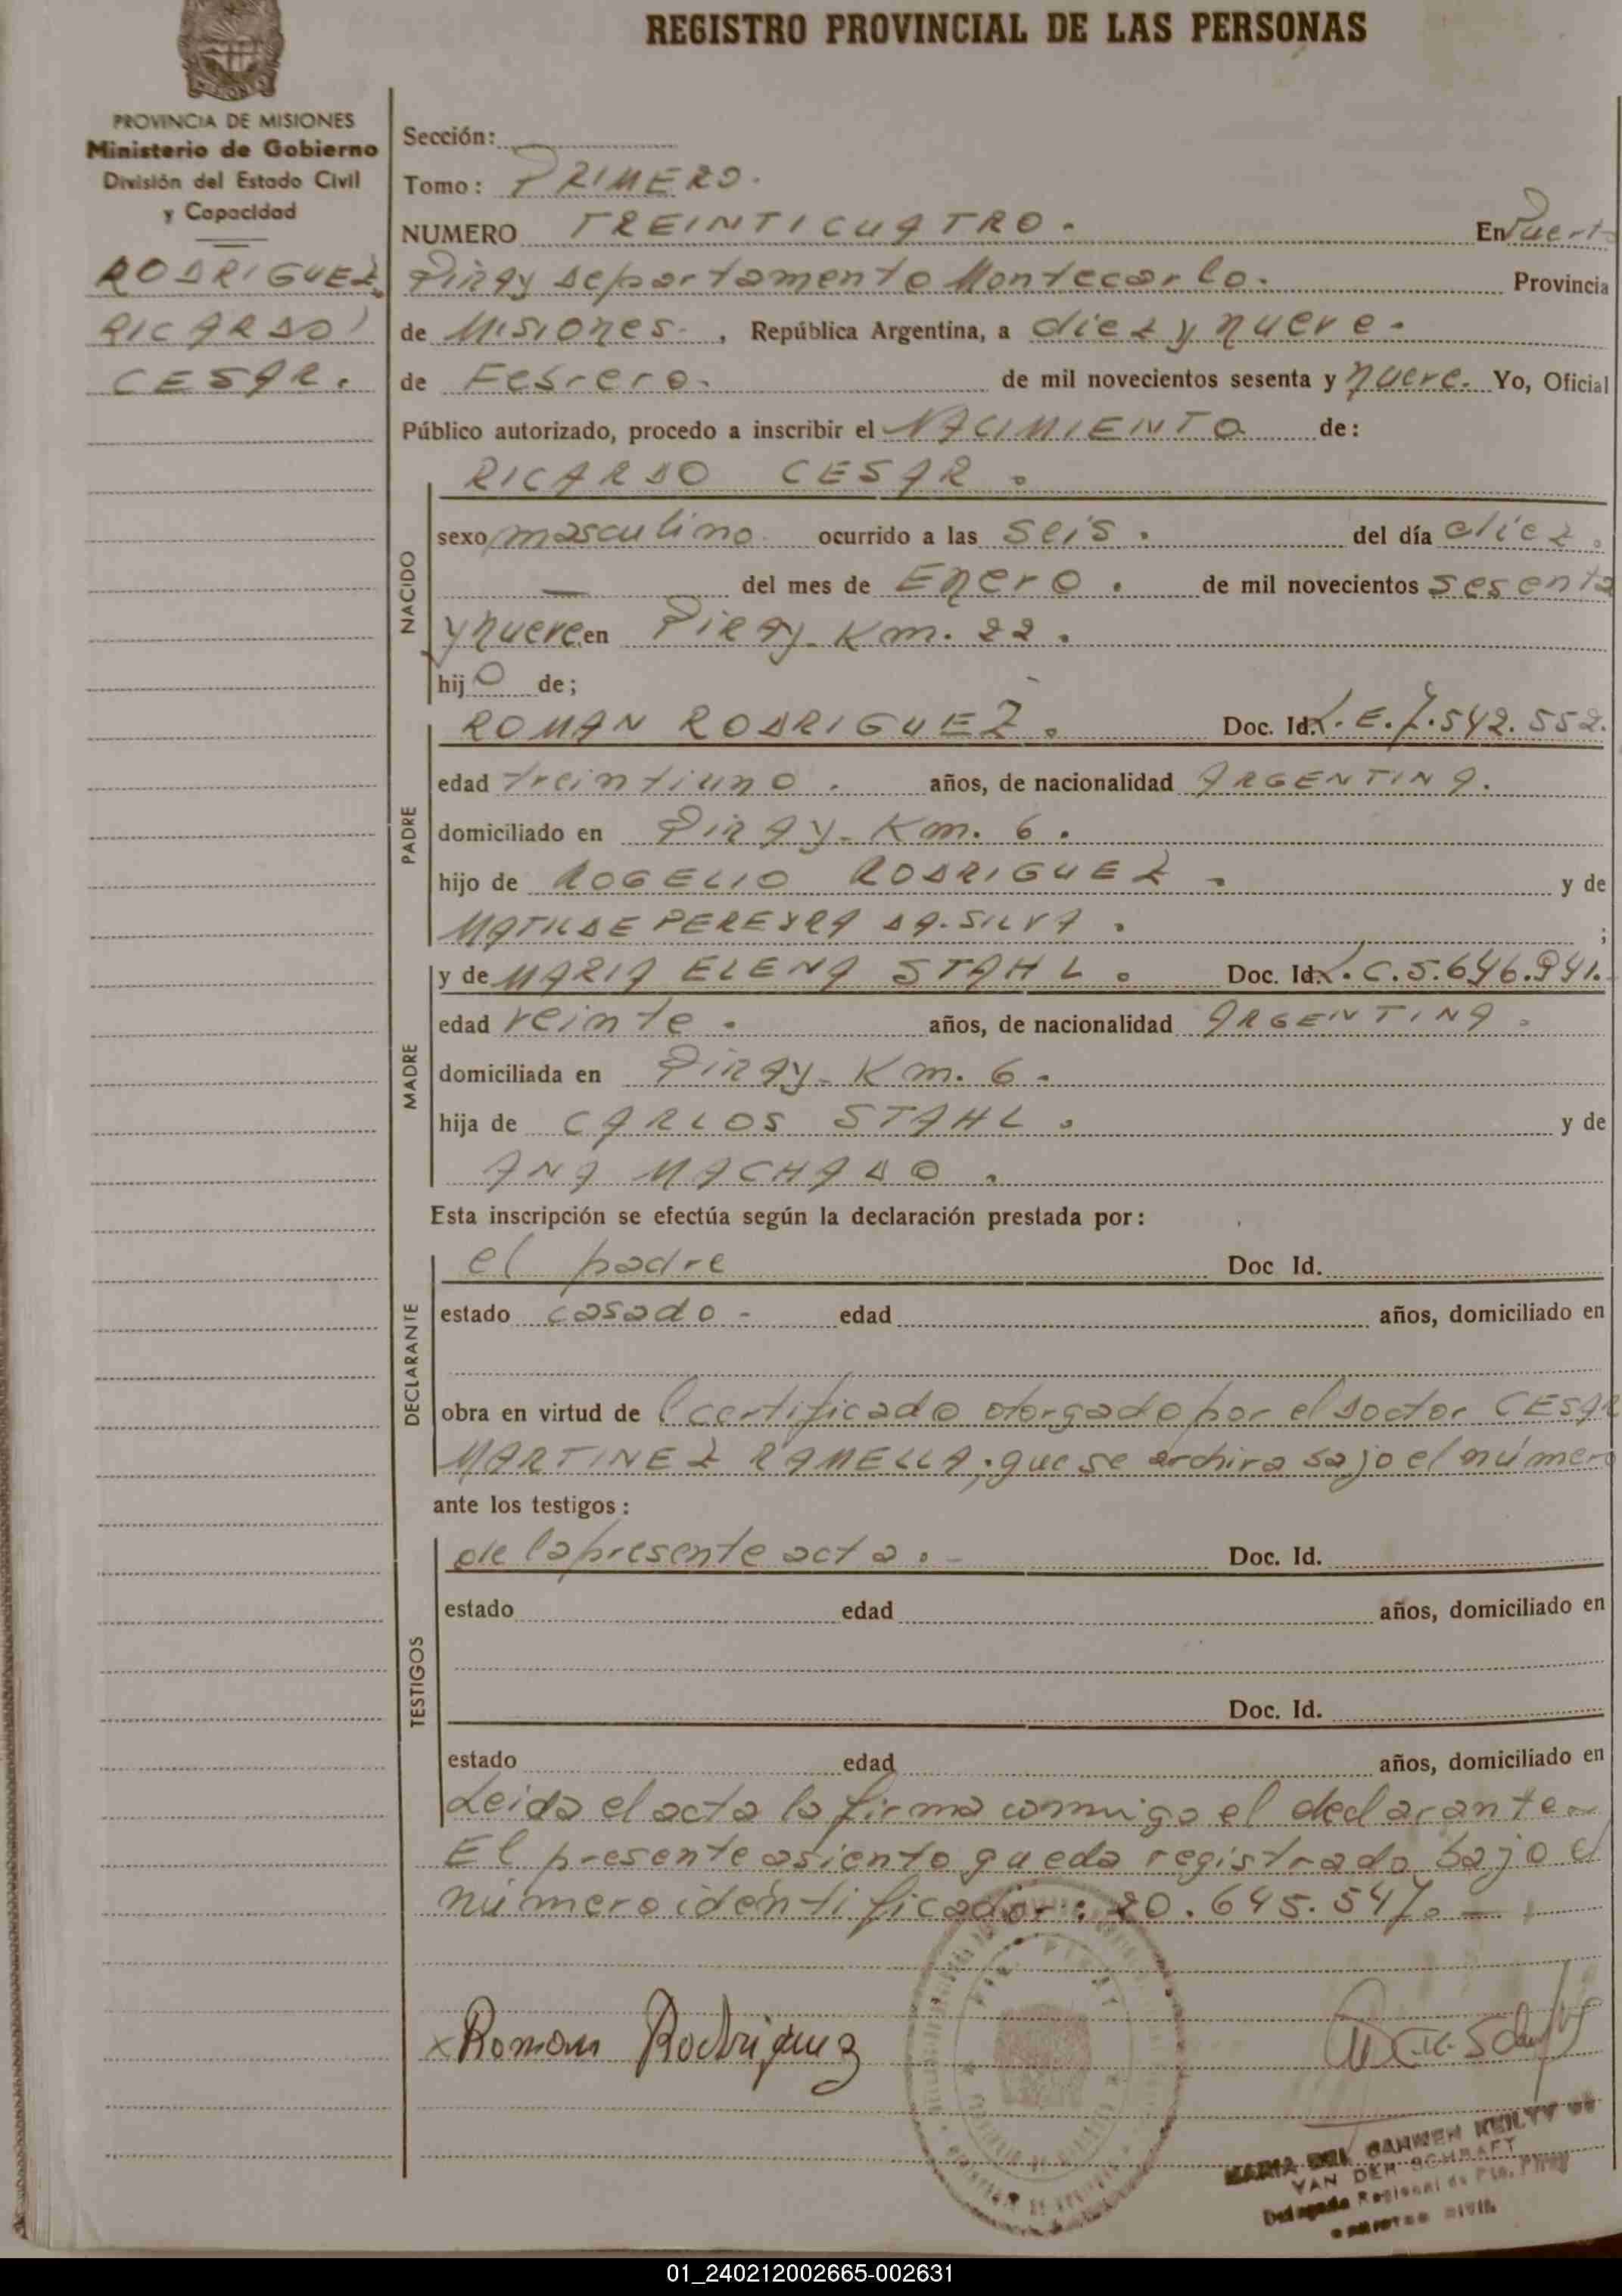 REGISTRO PROVINCIAL DE LAS PERSONAS
PROVINCIA DE MISIONES
Ministerio de Gobierno
División del Estado Civil
y Capacidad
RODRIGUEZ,
RICARDO
CESAR.
Sección:
Tomo: PRIMERO.
NUMERO TREINTICUATRO. En Puerto
Piray departamento Montecarlo. Provincia
de Misiones, República Argentina, a diez y nueve.
de Febrero. de mil novecientos sesenta y nueve. Yo, Oficial
Público autorizado, procedo a inscribir el NACIMIENTO de:
NACIDO
RICARDO CESAR.
sexo masculino ocurrido a las seis. del día diez.
— del mes de Enero. de mil novecientos sesenta
y nueve en Piray-Km. 22.
hijo de;
PADRE
ROMAN RODRIGUEZ. Doc. Id. L.E.7.542.552.
edad treintiuno. años, de nacionalidad ARGENTINA.
domiciliado en Piray-Km. 6.
hijo de ROGELIO RODRIGUEZ. y de
MATILDE PEREYRA DA-SILVA. ;
MADRE
y de MARIA ELENA STAHL. Doc. Id. L.C.5.646.941.
edad veinte. años, de nacionalidad ARGENTINA.
domiciliada en Piray-Km. 6.
hija de CARLOS STAHL. y de
ANA MACHADO.
Esta inscripción se efectúa según la declaración prestada por:
DECLARANTE
el padre Doc Id.
estado casado- edad años, domiciliado en
obra en virtud de l certificado otorgado por el doctor CESAR
MARTINEZ RAMELLA; que se archiva bajo el número
ante los testigos:
TESTIGOS
de la presente acta.- Doc. Id.
estado edad años, domiciliado en
Doc. Id.
estado edad años, domiciliado en
Leida el acta la firma conmigo el declarante.
El presente asiento queda registrado bajo el
número identificador: 20.645.547.—
x Roman Rodriguez
MARIA DEL CARMEN KEILTY DE
VAN DER SCHRAFT
Delegada Regional de Pto. Piray
01_240212002665-002631